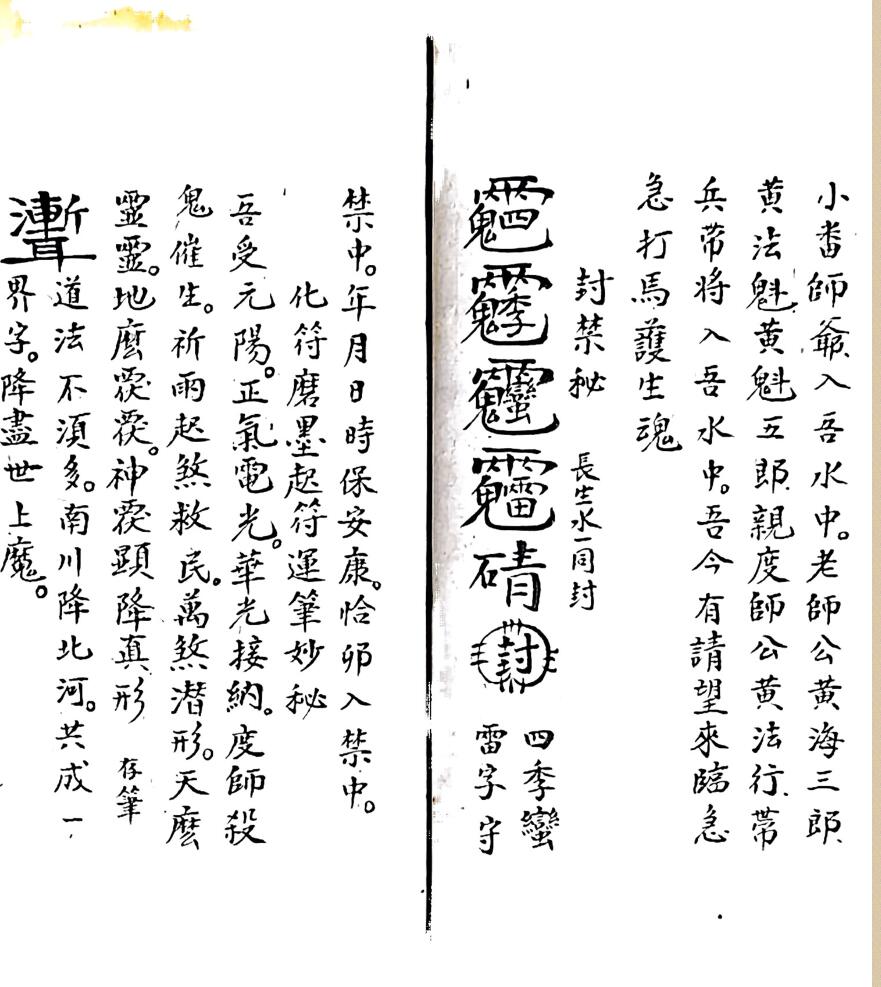 小番師爺入吾水中。老師公黃海三郎
黃法魁黃魁五郎親度師公黃法行帶
兵帶將入吾水中。吾今有請望來臨急
急打馬護生魂
封禁秘 長生水一同封
碃 封 四季蠻
雷字守
禁中。年月日時保安康。恰卯入禁中。
化符磨墨起符運筆妙秘
吾受元陽。正氣電光。華光接納。度師殺
鬼催生。祈雨起煞救民。萬煞潛形。天麽
靈靈。地麽霐霐。神霐顯降真形 存筆
道法不須多。南川降北河。共成一
界字。降盡世上魔。